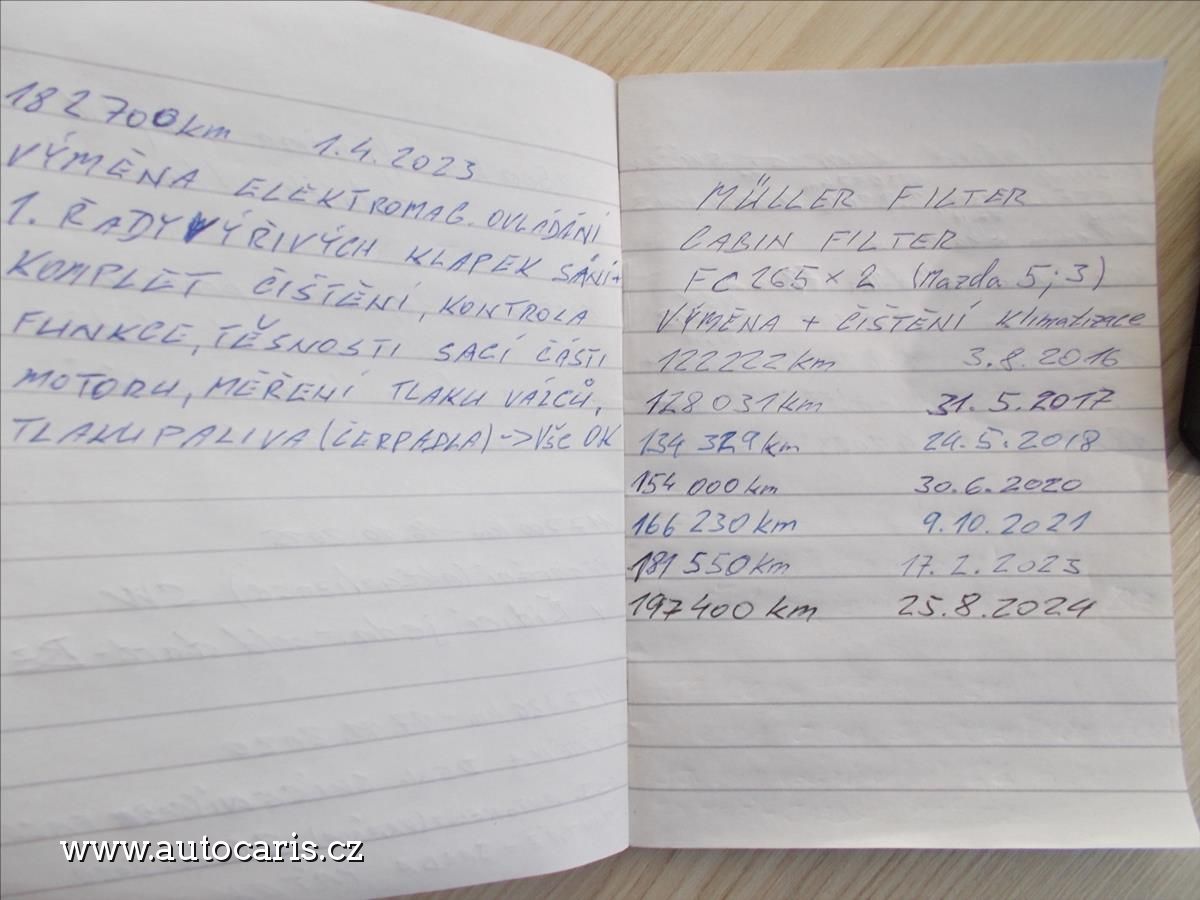 182 700 km 1.4.2023
VÝMĚNA ELEKTROMAG. OVLÁDÁNÍ
1. ŘADY VÝŘIVÝCH KLAPEK SÁNÍ+
KOMPLET ČIŠTĚNÍ, KONTROLA
FUNKCE, TĚSNOSTI SACÍ ČÁSTI
MOTORU, MĚŘENÍ TLAKU VÁLCŮ,
TLAKU PALIVA (ČERPADLA) -> Vše OK
MÜLLER FILTER
CABIN FILTER
FC 265 × 2 (Mazda 5; 3)
VÝMĚNA + ČIŠTĚNÍ Klimatizace
122222 km 3.8.2016
128 031 km 31.5.2017
134 329 km 24.5.2018
154 000 km 30.6.2020
166 230 km 9.10.2021
181 550 km 17.2.2023
197400 km 25.8.2024
www.autocaris.cz